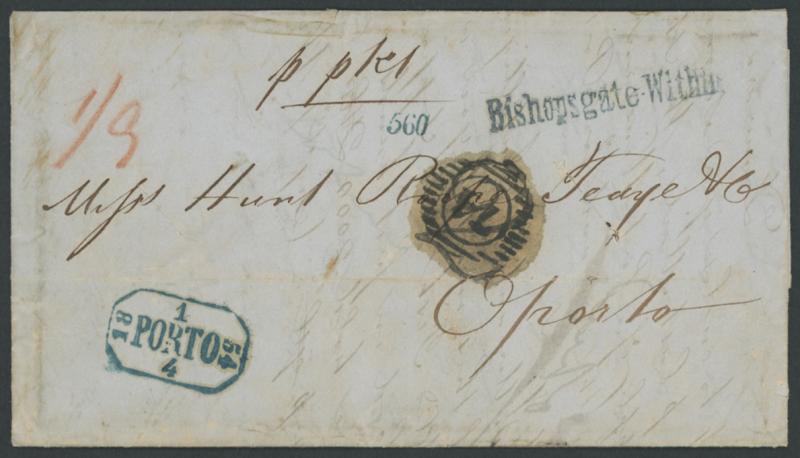 p pkt
1/9
560
Bishopsgate-Within
Messs Hunt Roope Teage & Co
12
Oporto
1
18 PORTO 54
4